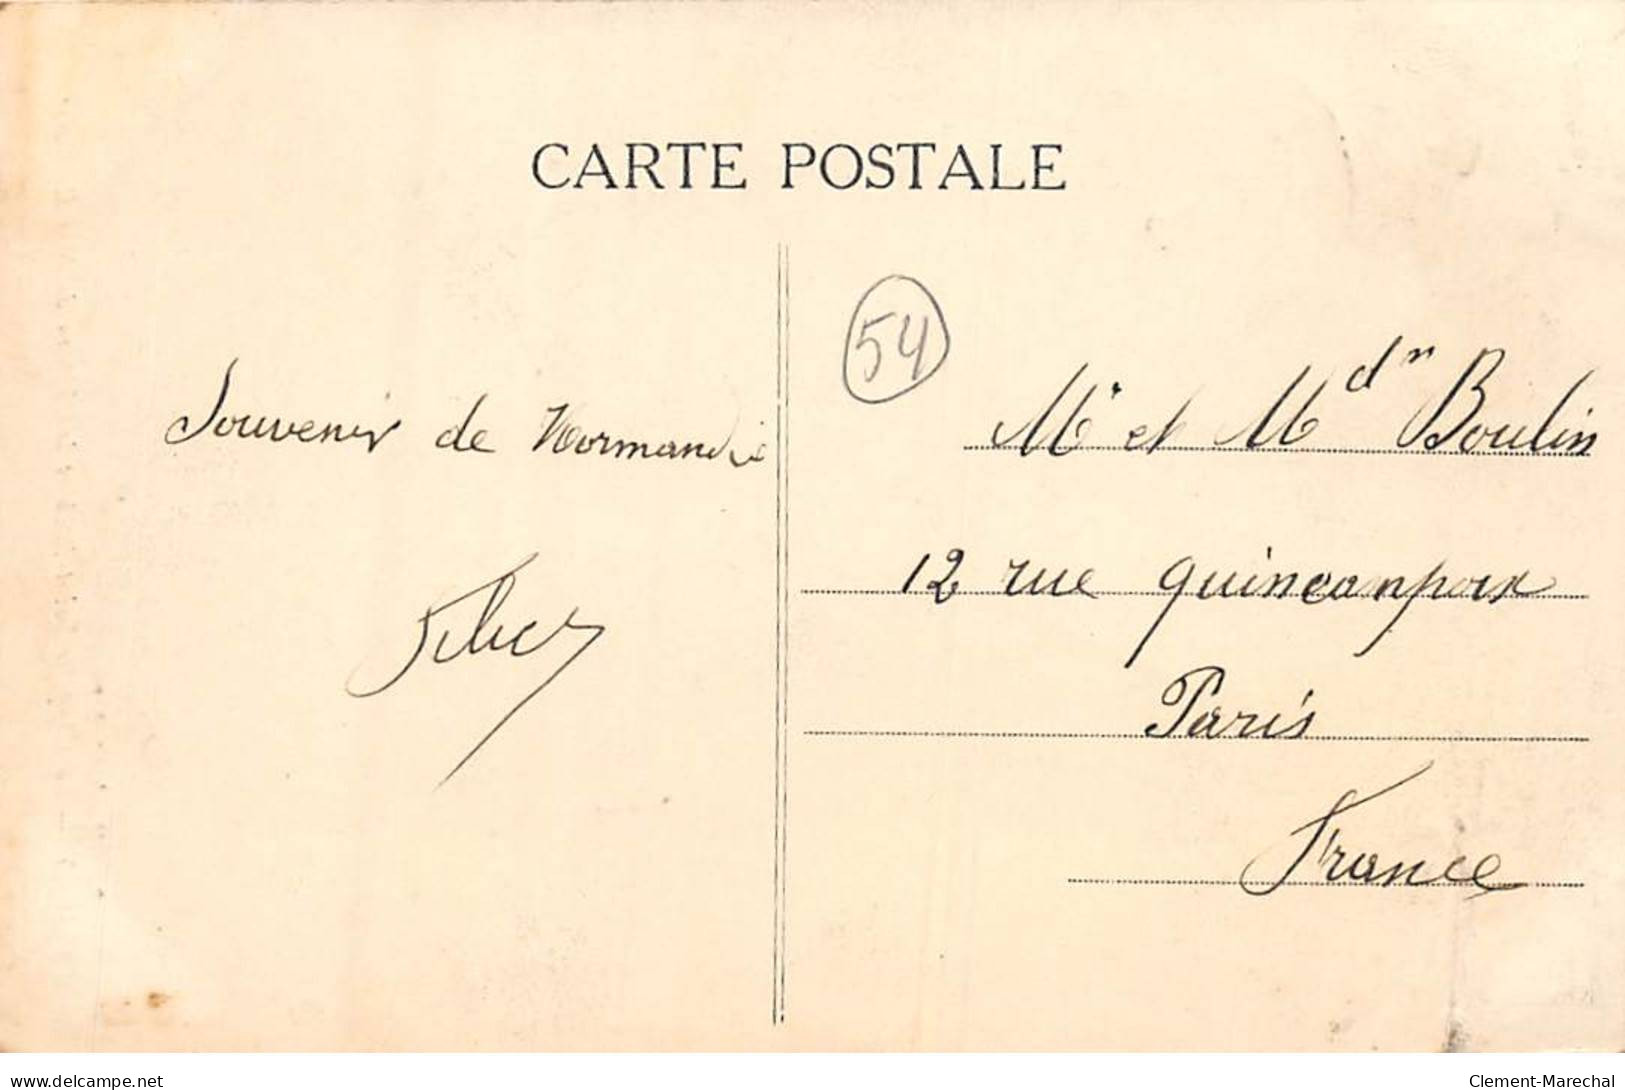 CARTE POSTALE
54
Souvenir de Normandie
Mr et Mdm Boulin
12 rue quincanpoix
Paris
France
delcampe.net
Clement-Marechal